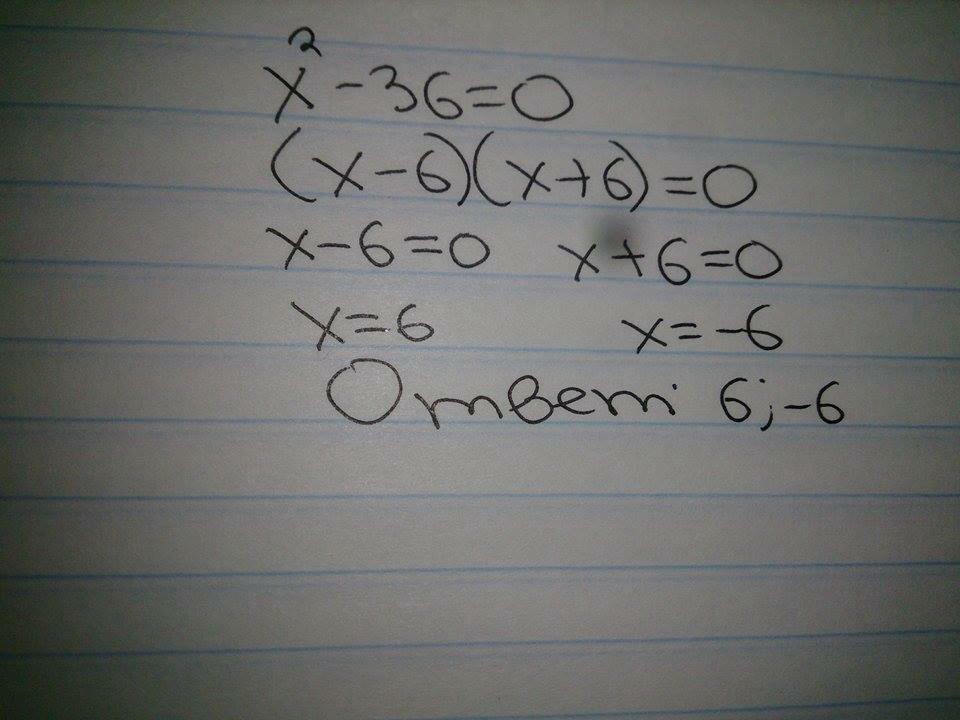 x²-36=0
(x-6)(x+6)=0
x-6=0 x+6=0
x=6 x=-6
Ответ: 6;-6